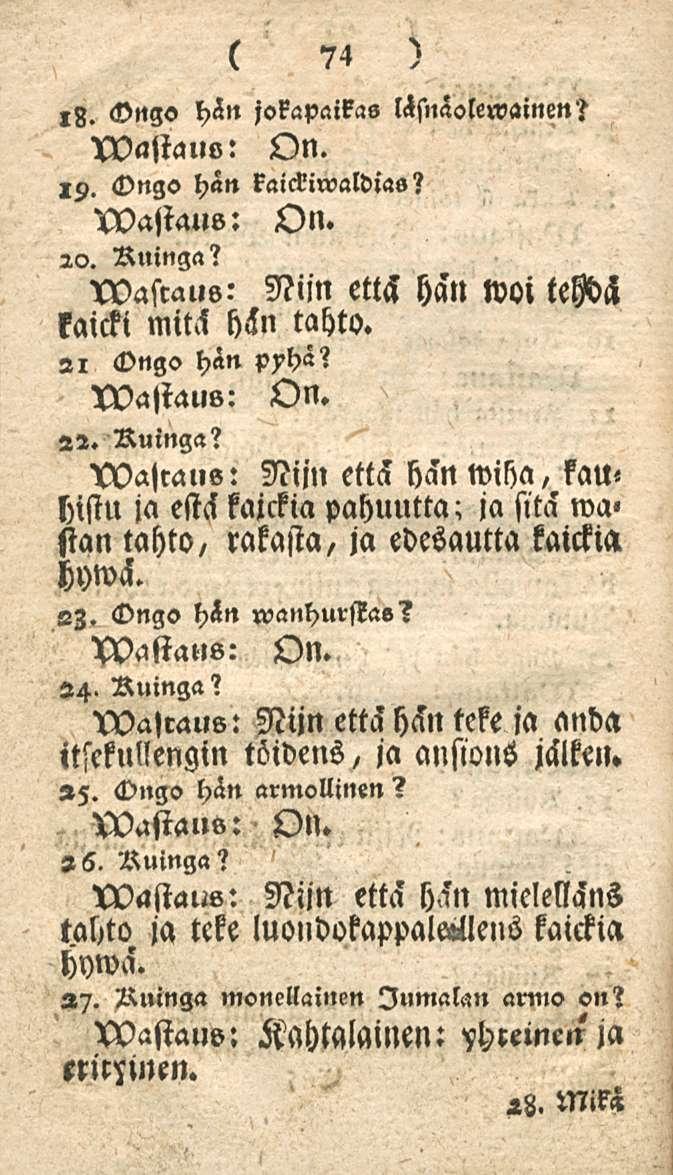 ( 74 )
18. Ongo hån jokapaikas låsnåolewainen?
Wastaus: On.
19. Ongo hån kaickiwaldias?
Wastaus: On.
20. Kuinga?
Wastaus: Nijn ettå hån woi tehdå
kaicki mitå hån tahto.
21 Ongo hån pyhå?
Wastaus: On.
22. Kuinga?
Wastaus: Nijn ettå hån wiha, kau-
histu ja estå kaickia pahuutta; ja sitå wa-
stan tahto, rakasta, ja edesautta kaickia
hywå.
23. Ongo hån wanhurskas?
Wastaus: On.
24. Kuinga?
Wastaus: Nijn ettå hån teke ja anda
itsekullengin tõidens, ja ansions jålken.
25. Ongo hån armollinen?
Wastaus: On.
26. Kuinga?
Wastaus: Nijn ettå hån mielellåns
tahto ja teke luondokappalellens kaickia
hywå.
27. Kuinga monellainen Jumalan armo on?
Wastaus: Kahtalainen: yhteinen ja
erityinen.
28. Mikå